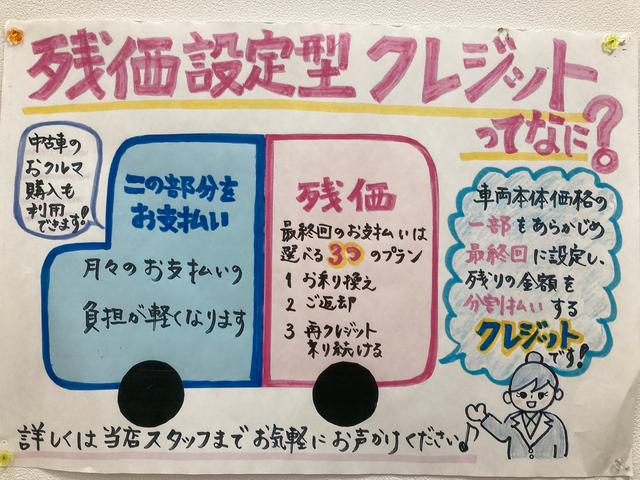 残価設定型クレジット
ってなに?
中古車の
おクルマ
購入も
利用
できます!
この部分を
お支払い
月々のお支払いの
負担が軽くなります
残価
最終回のお支払いは
選べる3つのプラン
1 お乗り換え
2 ご返却
3 再クレジット
乗り続ける
車両本体価格の
一部をあらかじめ
最終回に設定し、
残りの金額を
分割払いする
クレジットです!
詳しくは当店スタッフまでお気軽にお声がけください。